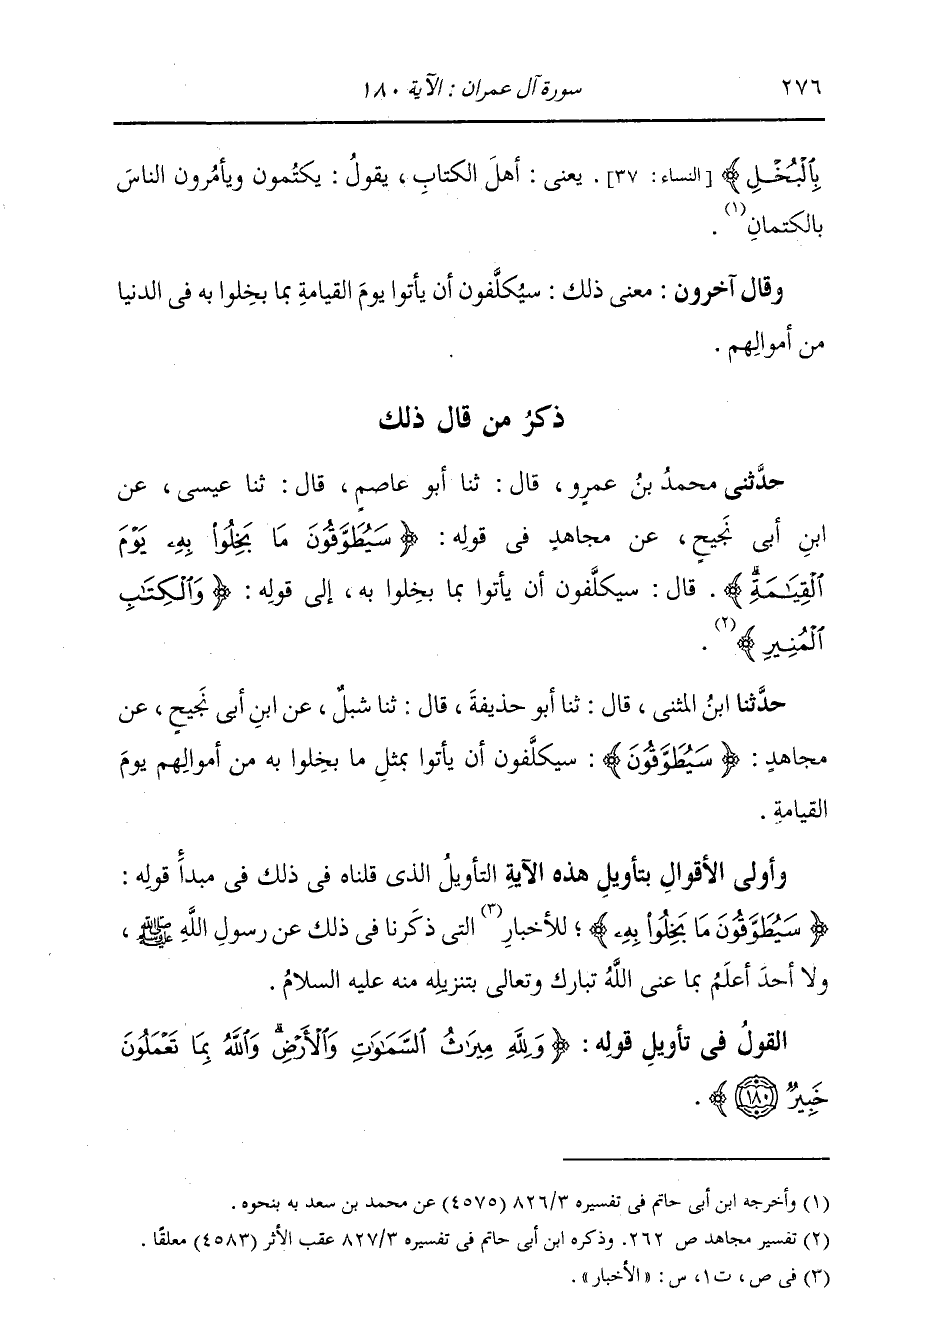 ٢٧٦ سورة آل عمران : الآية ١٨٠
بِٱلْبُخْلِ ﴾ [النساء : ٣٧] . يعنى : أهلَ الكتابِ ، يقولُ : يكتُمون ويأمُرون الناسَ
بالكتمانِ(١) .
وقال آخرون : معنى ذلك : سيُكلَّفون أن يأتوا يومَ القيامةِ بما بخِلوا به فى الدنيا
من أموالِهم .
ذكرُ من قال ذلك
حدَّثنى محمدُ بنُ عمرٍو ، قال : ثنا أبو عاصمٍ ، قال : ثنا عيسى ، عن
ابنِ أبى نَجيحٍ ، عن مجاهدٍ فى قولِه : ﴿ سَيُطَوَّقُونَ مَا بَخِلُوا۟ بِهِۦ يَوْمَ
ٱلْقِيَـٰمَةِۗ ﴾ . قال : سيكلَّفون أن يأتوا بما بخِلوا به ، إلى قولِه : ﴿ وَٱلْكِتَـٰبِ
ٱلْمُنِيرِ ﴾(٢) .
حدَّثنا ابنُ المثنى ، قال : ثنا أبو حذيفةَ ، قال : ثنا شبلٌ ، عن ابنِ أبى نَجيحٍ ، عن
مجاهدٍ : ﴿ سَيُطَوَّقُونَ ﴾ : سيكلَّفون أن يأتوا بمثلِ ما بخِلوا به من أموالِهم يومَ
القيامةِ .
وأولى الأقوالِ بتأويلِ هذه الآيةِ التأويلُ الذى قلناه فى ذلك فى مبدأُ قولِه :
﴿ سَيُطَوَّقُونَ مَا بَخِلُوا۟ بِهِۦ ﴾ ؛ للأخبارِ(٣) التى ذكَرنا فى ذلك عن رسولِ اللَّهِ ﷺ ،
ولا أحدَ أعلَمُ بما عنى اللَّهُ تبارك وتعالى بتنزيلِه منه عليه السلامُ .
القولُ فى تأويلِ قولِه : ﴿ وَلِلَّهِ مِيرَٰثُ ٱلسَّمَـٰوَٰتِ وَٱلْأَرْضِۗ وَٱللَّهُ بِمَا تَعْمَلُونَ
خَبِيرٌ ١٨٠ ﴾ .
(١) وأخرجه ابن أبى حاتم فى تفسيره ٨٢٦/٣ (٤٥٧٥) عن محمد بن سعد به بنحوه .
(٢) تفسير مجاهد ص ٢٦٢. وذكره ابن أبى حاتم فى تفسيره ٨٢٧/٣ عقب الأثر (٤٥٨٣) معلقًا .
(٣) فى ص ، ت١، س : «الأخبار» .